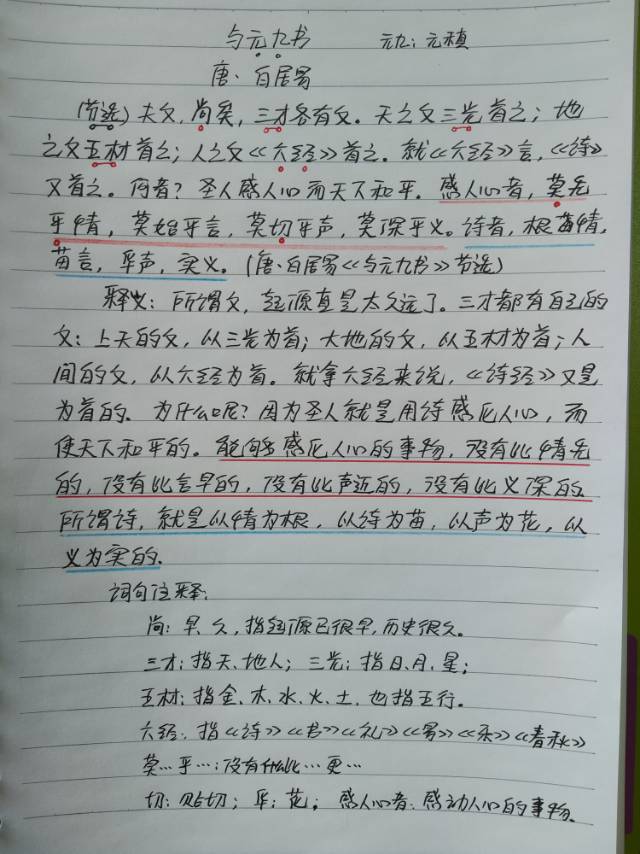 与元九书 元九:元稹
唐·白居易
(节选)夫文,尚矣,三才各有文。天之文三光首之;地
之文五材首之;人之文《六经》首之。就《六经》言,《诗》
又首之。何者?圣人感人心而天下和平。感人心者,莫先
乎情,莫始乎言,莫切乎声,莫深乎义。诗者,根情,
苗言,华声,实义。(唐·白居易《与元九书》节选)
释义:所谓文,起源真是太久远了。三才都有自己的
文:上天的文,以三光为首;大地的文,以五材为首;人
间的文,以六经为首。就拿六经来说,《诗经》又是
为首的。为什么呢?因为圣人就是用诗感化人心,而
使天下和平的。能够感化人心的事物,没有比情先
的,没有比言早的,没有比声近的,没有比义深的。
所谓诗,就是以情为根,以诗为苗,以声为花,以
义为实的。
词句注释:
尚:早、久,指起源已很早,历史很久。
三才:指天、地人;三光:指日、月、星;
五材:指金、木、水、火、土,也指五行。
六经:指《诗》《书》《礼》《易》《乐》《春秋》
莫…乎…:没有什么比…更…
切:贴切;华:花;感人心者:感动人心的事物。